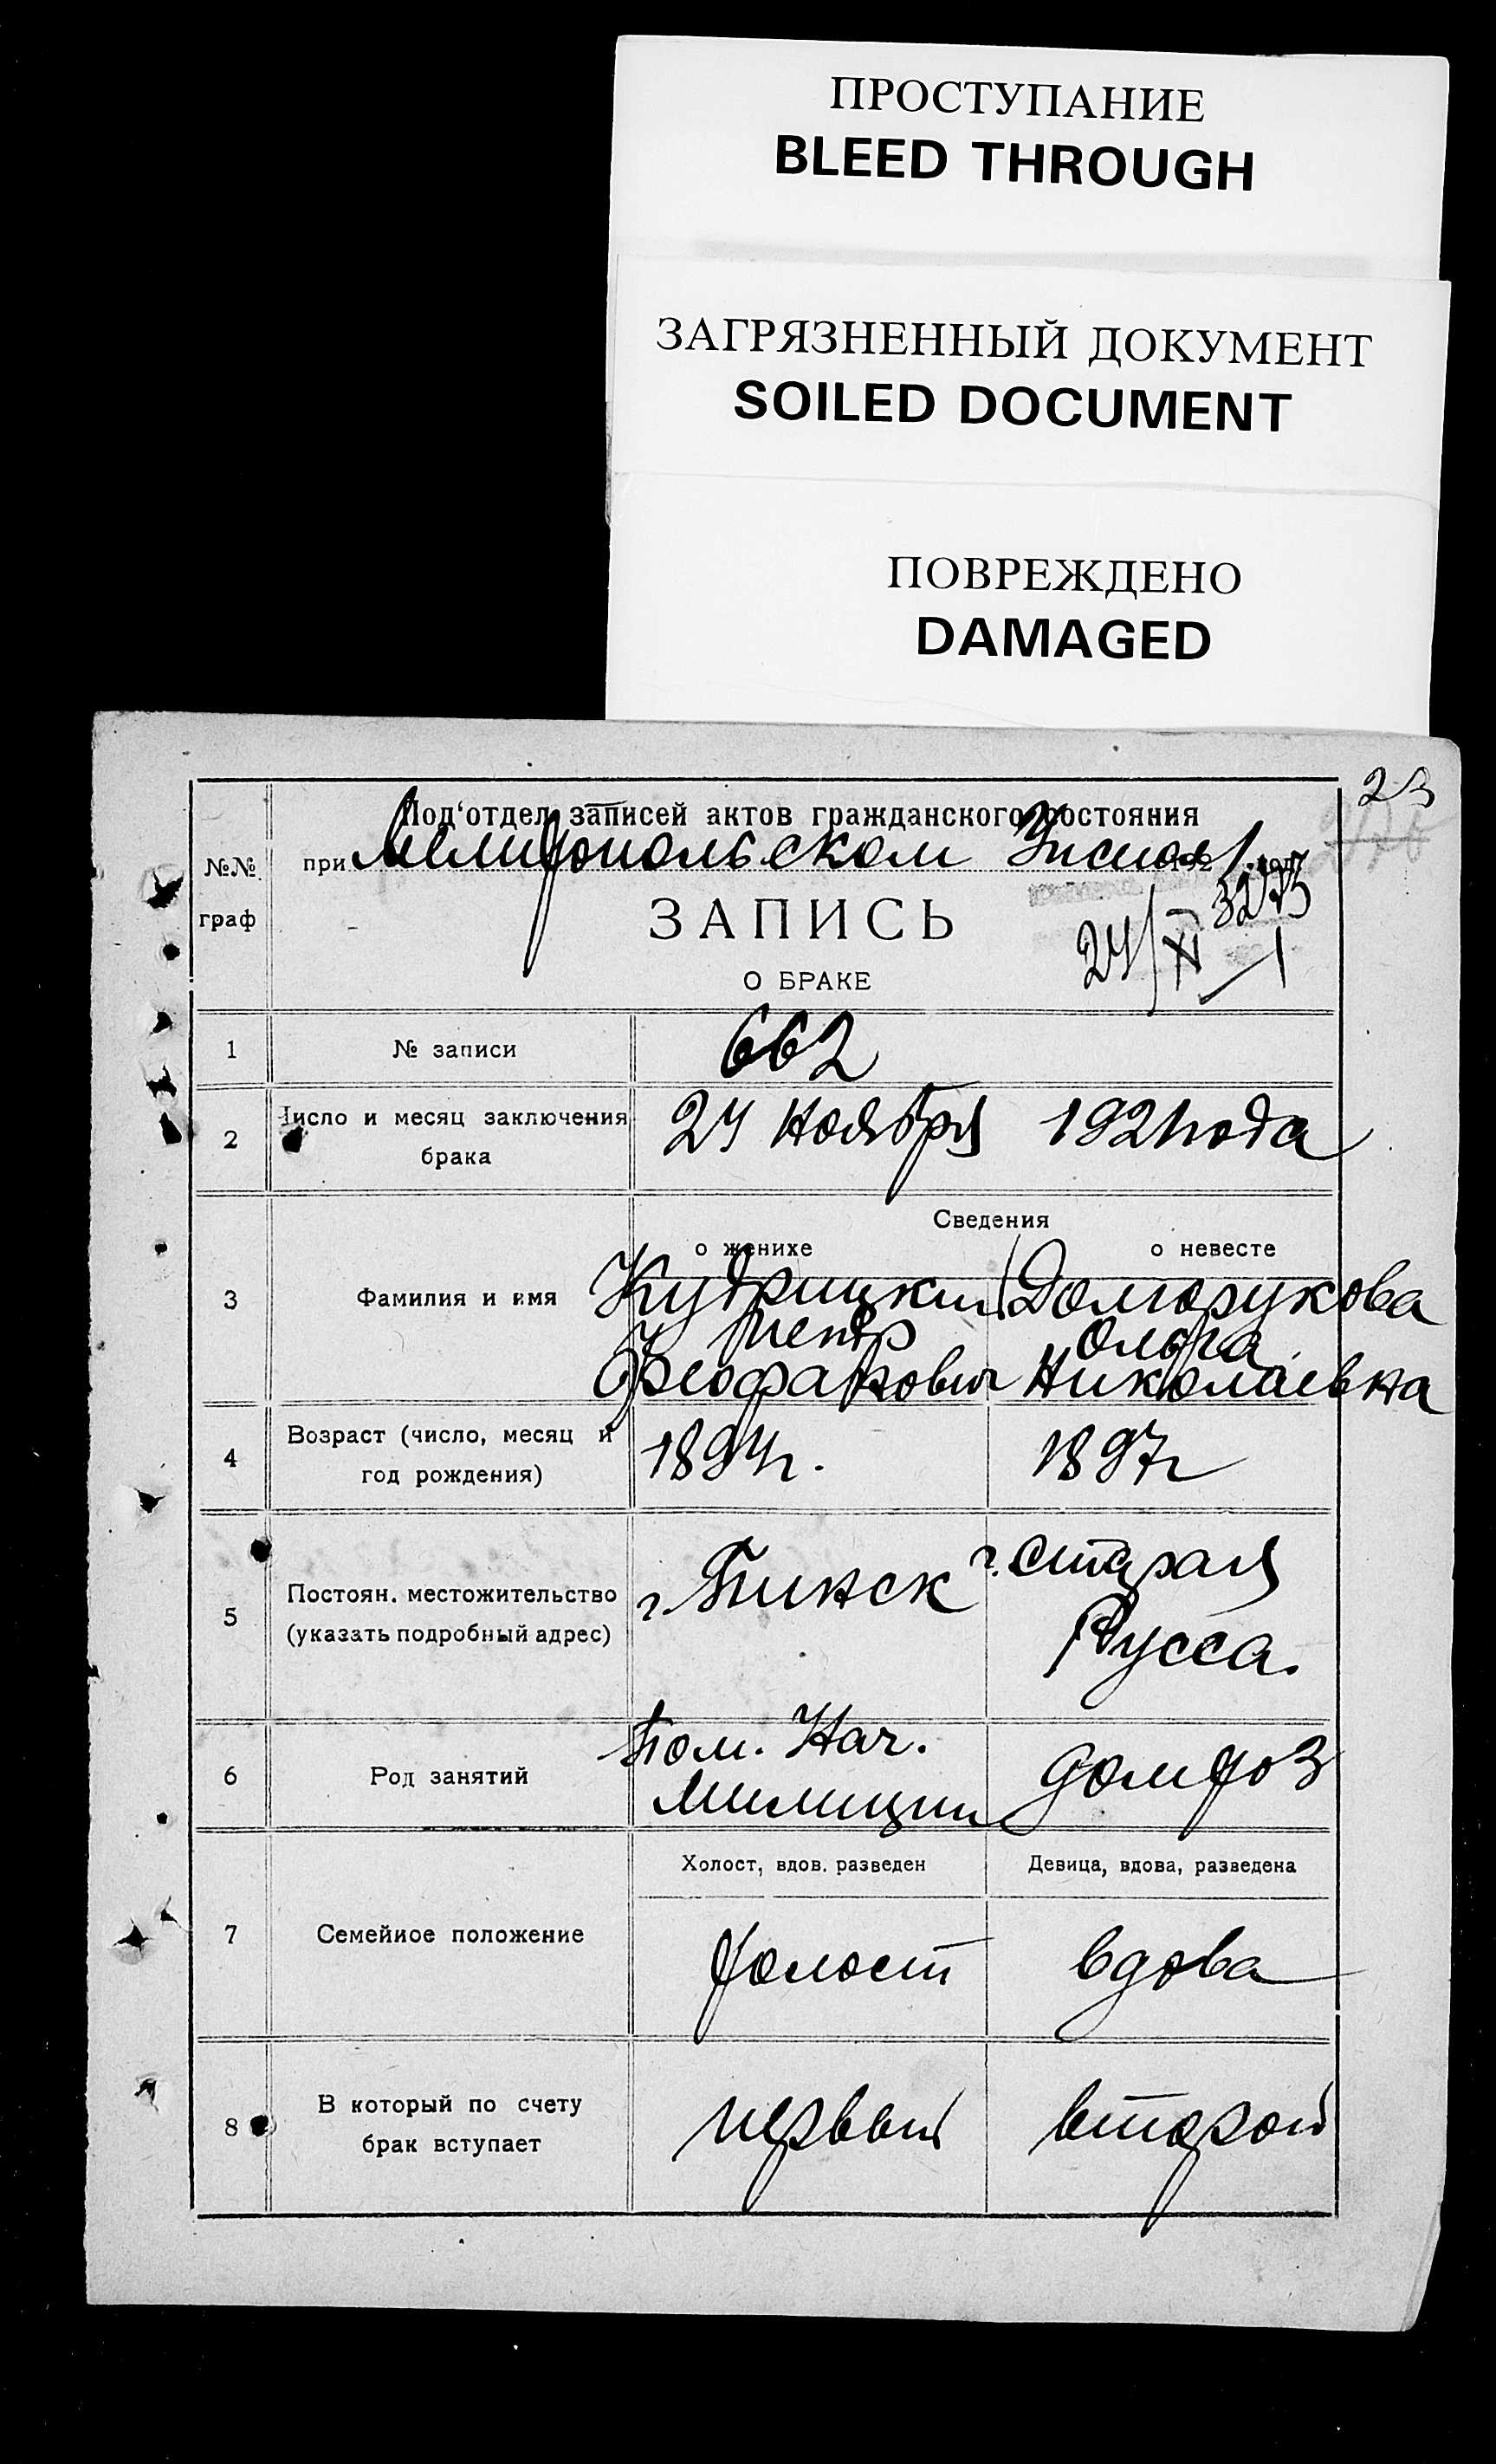 ПРОСТУПАНИЕ
BLEED THROUGH
ЗАГРЯЗНЕННЫЙ ДОКУМЕНТ
SOILED DOCUMENT
ПОВРЕЖДЕНО
DAMAGED
23
№№ граф
Под'отдел записей актов гражданского состояния
при Мелитопольском
3273
ЗАПИСЬ
24/XI
О БРАКЕ
1 № записи 662
2 Число и месяц заключения брака 24 ноября 1921 года
Сведения
о женихе о невесте
3 Фамилия и имя Кудрицкий Долгорукова
Петр Ольга
Феофанович Николаевна
4 Возраст (число, месяц и год рождения) 1894г. 1897г
5 Постоян. местожительство (указать подробный адрес) г. Пинск г. Старая
Русса.
6 Род занятий Пом. Нач. домхоз
Милиции
Холост, вдов. разведен Девица, вдова, разведена
7 Семейное положение холост вдова
8 В который по счету брак вступает первый второй